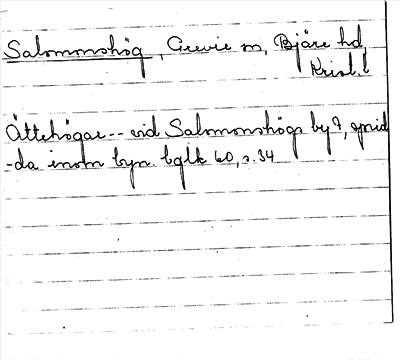 Salomonshög, Grevie sn, Bjäre hd,
Krist. l
Ättehögar -- vid Salomonshögs by?, sprid-
-da inom byn. bglk 60, s. 34